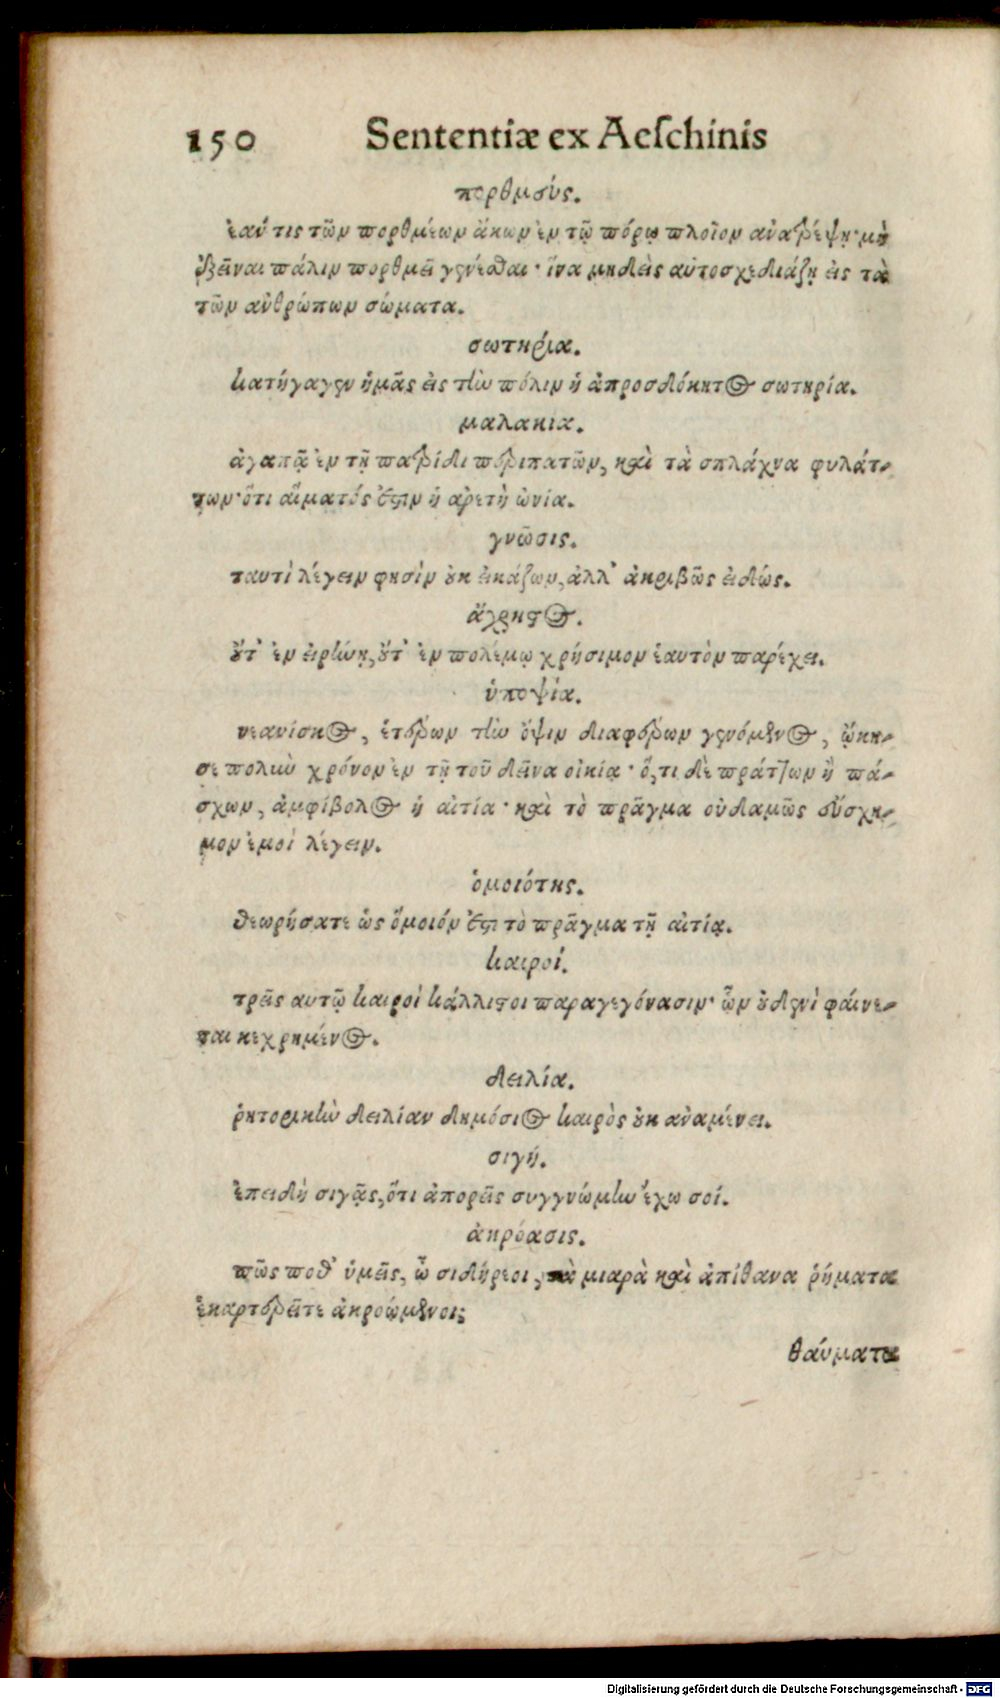 150 Sententiæ ex Aeſchinis
πορθμεύς.
ἐάν τις τῶν πορθμέων ἄκων ἐν τῷ πόρῳ πλοῖον ἀναστρέψῃ· μὴ
ἐξεῖναι πάλιν πορθμεῖ γενέσθαι· ἵνα μηδεὶς αὐτοσχεδιάζῃ εἰς τὰ
τῶν ἀνθρώπων σώματα.
σωτηρία.
κατήγαγεν ἡμᾶς εἰς τὴν πόλιν ἡ ἀπροσδόκητος σωτηρία.
μαλακία.
ἀγαπᾷ ἐν τῇ πατρίδι περιπατῶν, καὶ τὰ σπλάχνα φυλάτ-
των· ὅτι αἵματός ἐστιν ἡ ἀρετὴ ὠνία.
γνῶσις.
ταυτὶ λέγειν φησὶν οὐκ εἰκάζων, ἀλλ' ἀκριβῶς εἰδώς.
ἄχρηστος.
οὔτ' ἐν εἰρήνῃ, οὔτ' ἐν πολέμῳ χρήσιμον ἑαυτὸν παρέχει.
ὑποψία.
νεανίσκος, ἑτέρων τὴν ὄψιν διαφέρων γενόμενος, ᾤκη-
σε πολὺν χρόνον ἐν τῇ τοῦ δεῖνα οἰκίᾳ· ὅ, τι δὲ πράττων ἢ πά-
σχων, ἀμφίβολος ἡ αἰτία· καὶ τὸ πρᾶγμα οὐδαμῶς εὔσχη-
μον ἐμοὶ λέγειν.
ὁμοιότης.
θεωρήσατε ὡς ὅμοιόν ἐστι τὸ πρᾶγμα τῇ αἰτίᾳ.
καιροί.
τρεῖς αυτῷ καιροὶ κάλλιστοι παραγεγόνασιν· ὧν οὐδενὶ φαίνε-
ται κεχρημένος.
δειλία.
ῥητορικὴν δειλίαν δημόσιος καιρὸς οὐκ ἀναμένει.
σιγή.
ἐπειδὴ σιγᾷς, ὅτι ἀπορεῖς συγγνώμην ἔχω σοί.
ἀκρόασις.
πῶς ποθ' ὑμεῖς, ὦ σιδήρεοι, τὰ μιαρὰ καὶ ἀπίθανα ῥήματα
ἐκαρτερεῖτε ἀκροώμενοι;
θαύματα
Digitalisierung gefördert durch die Deutsche Forschungsgemeinschaft - DFG